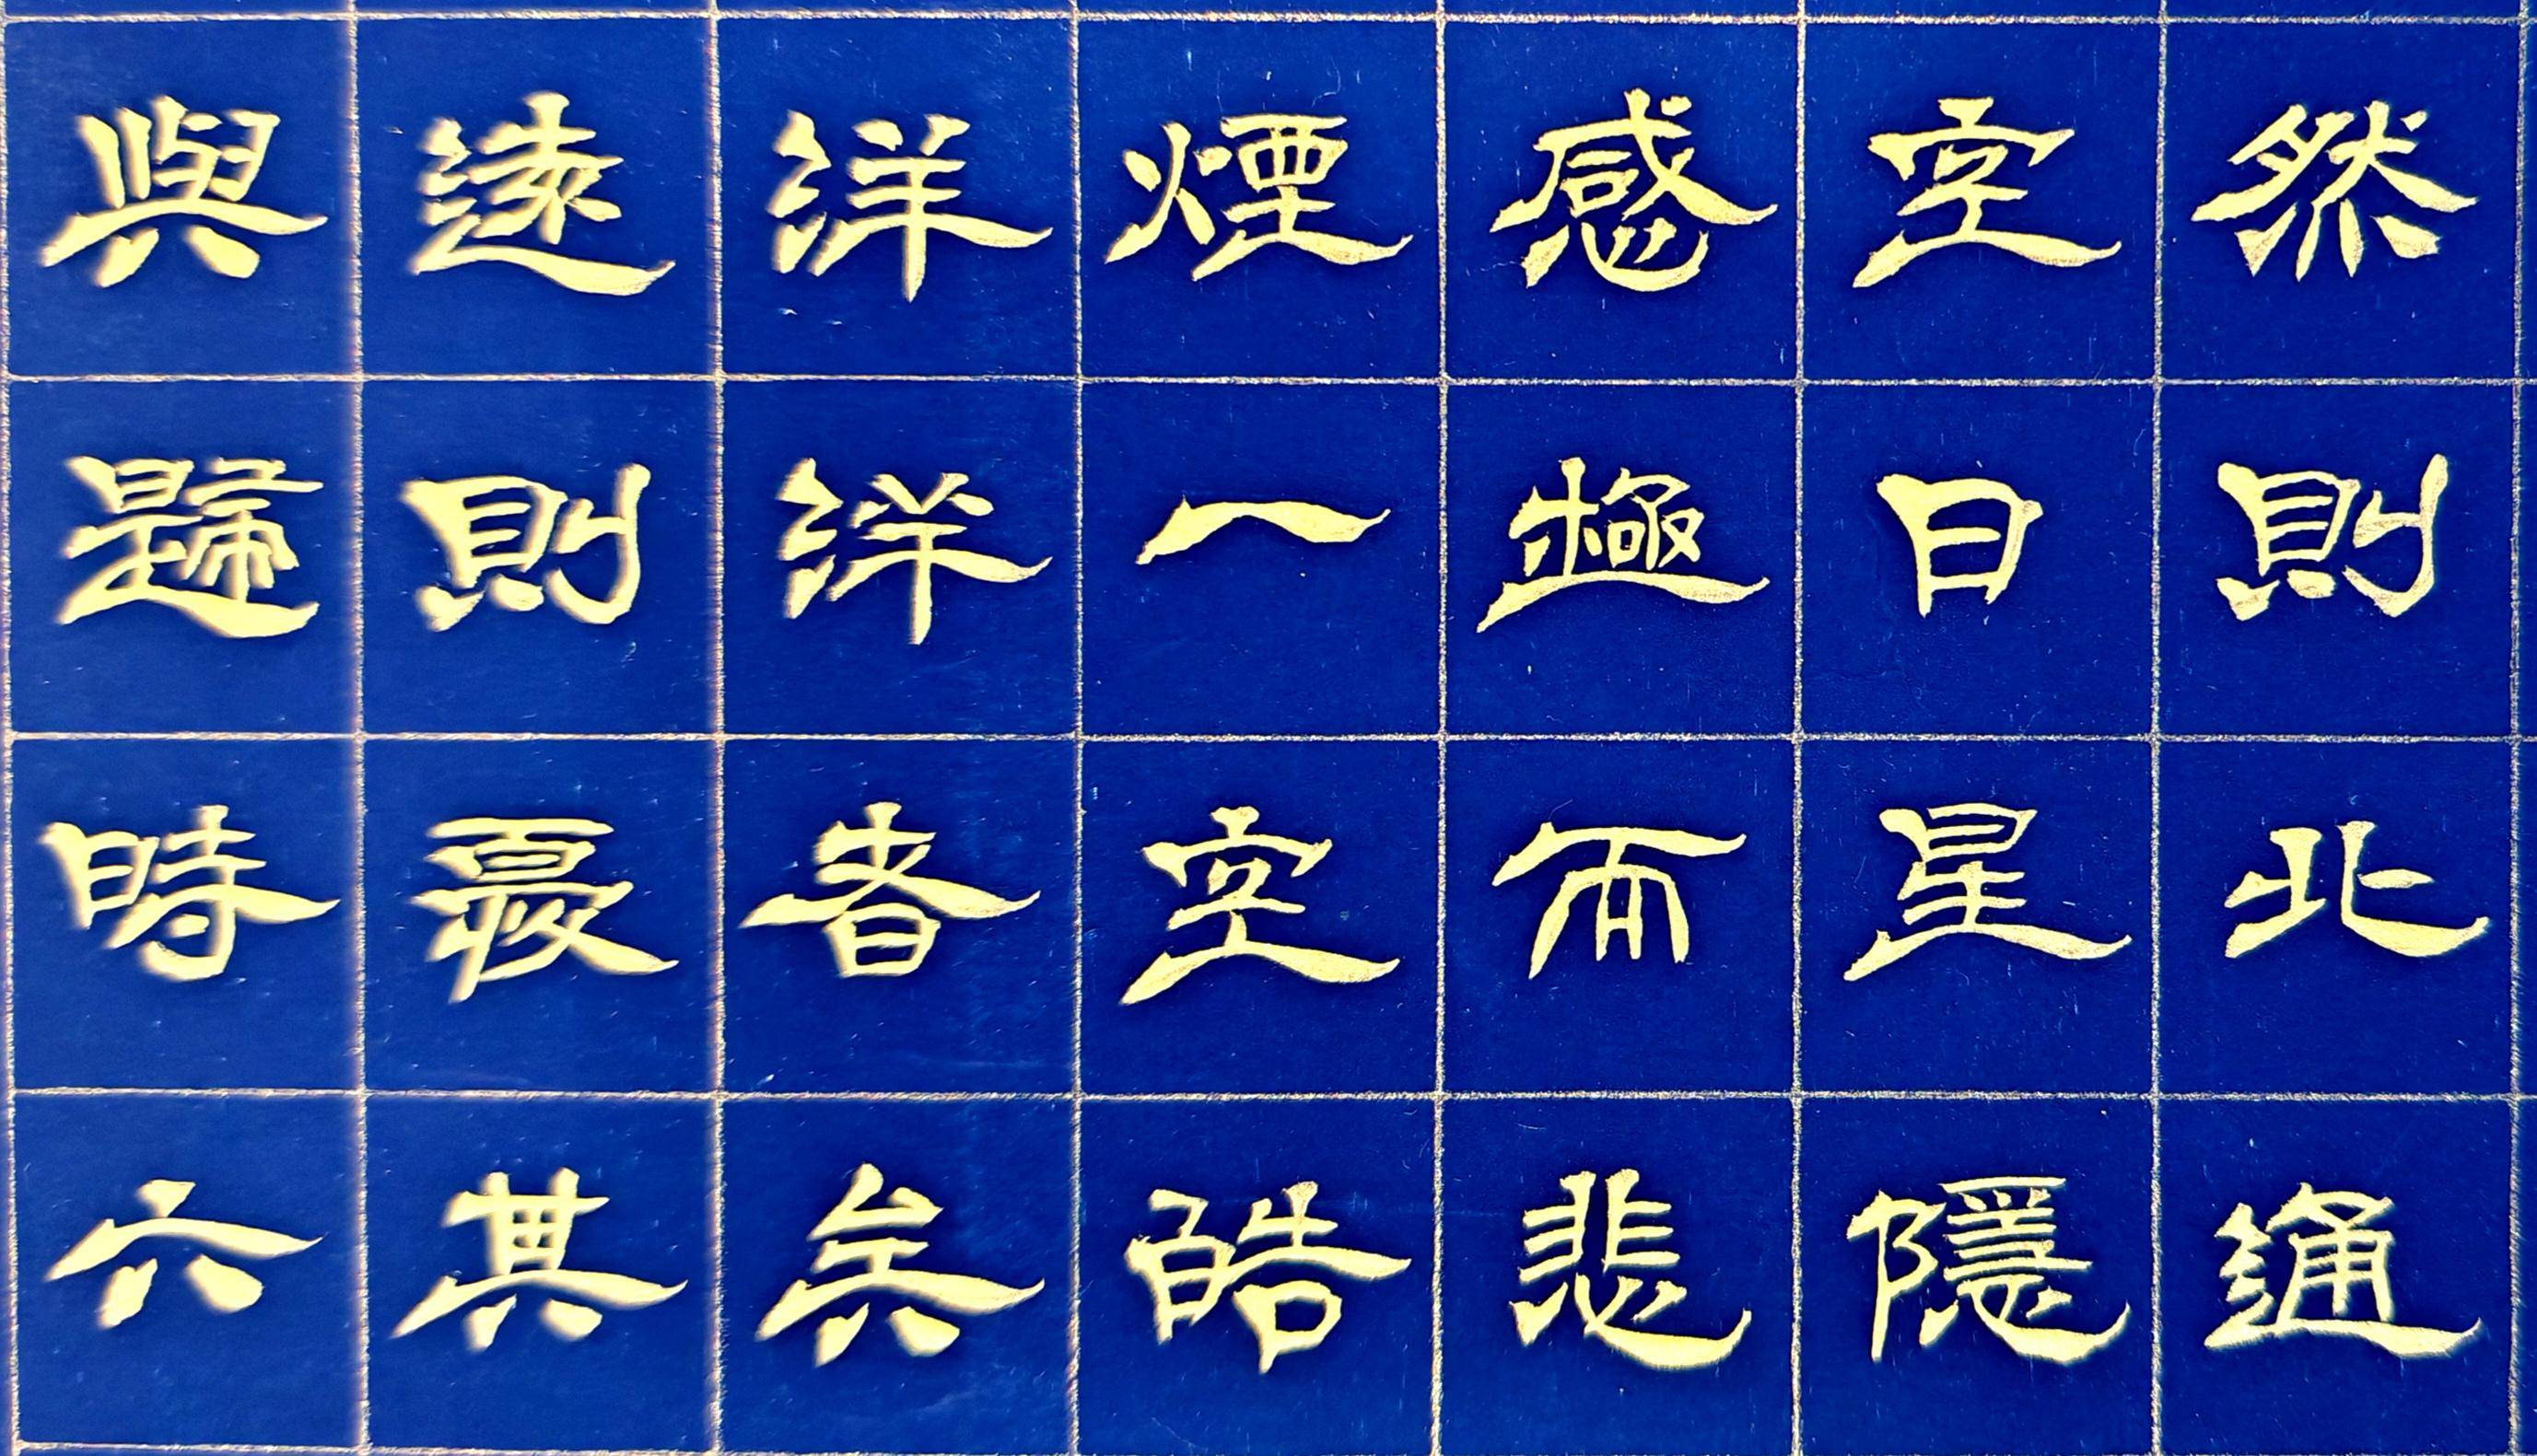 然則北通
空日星隱
感極而悲
煙一空皓
洋洋者矣
遠則憂其
與歸時六